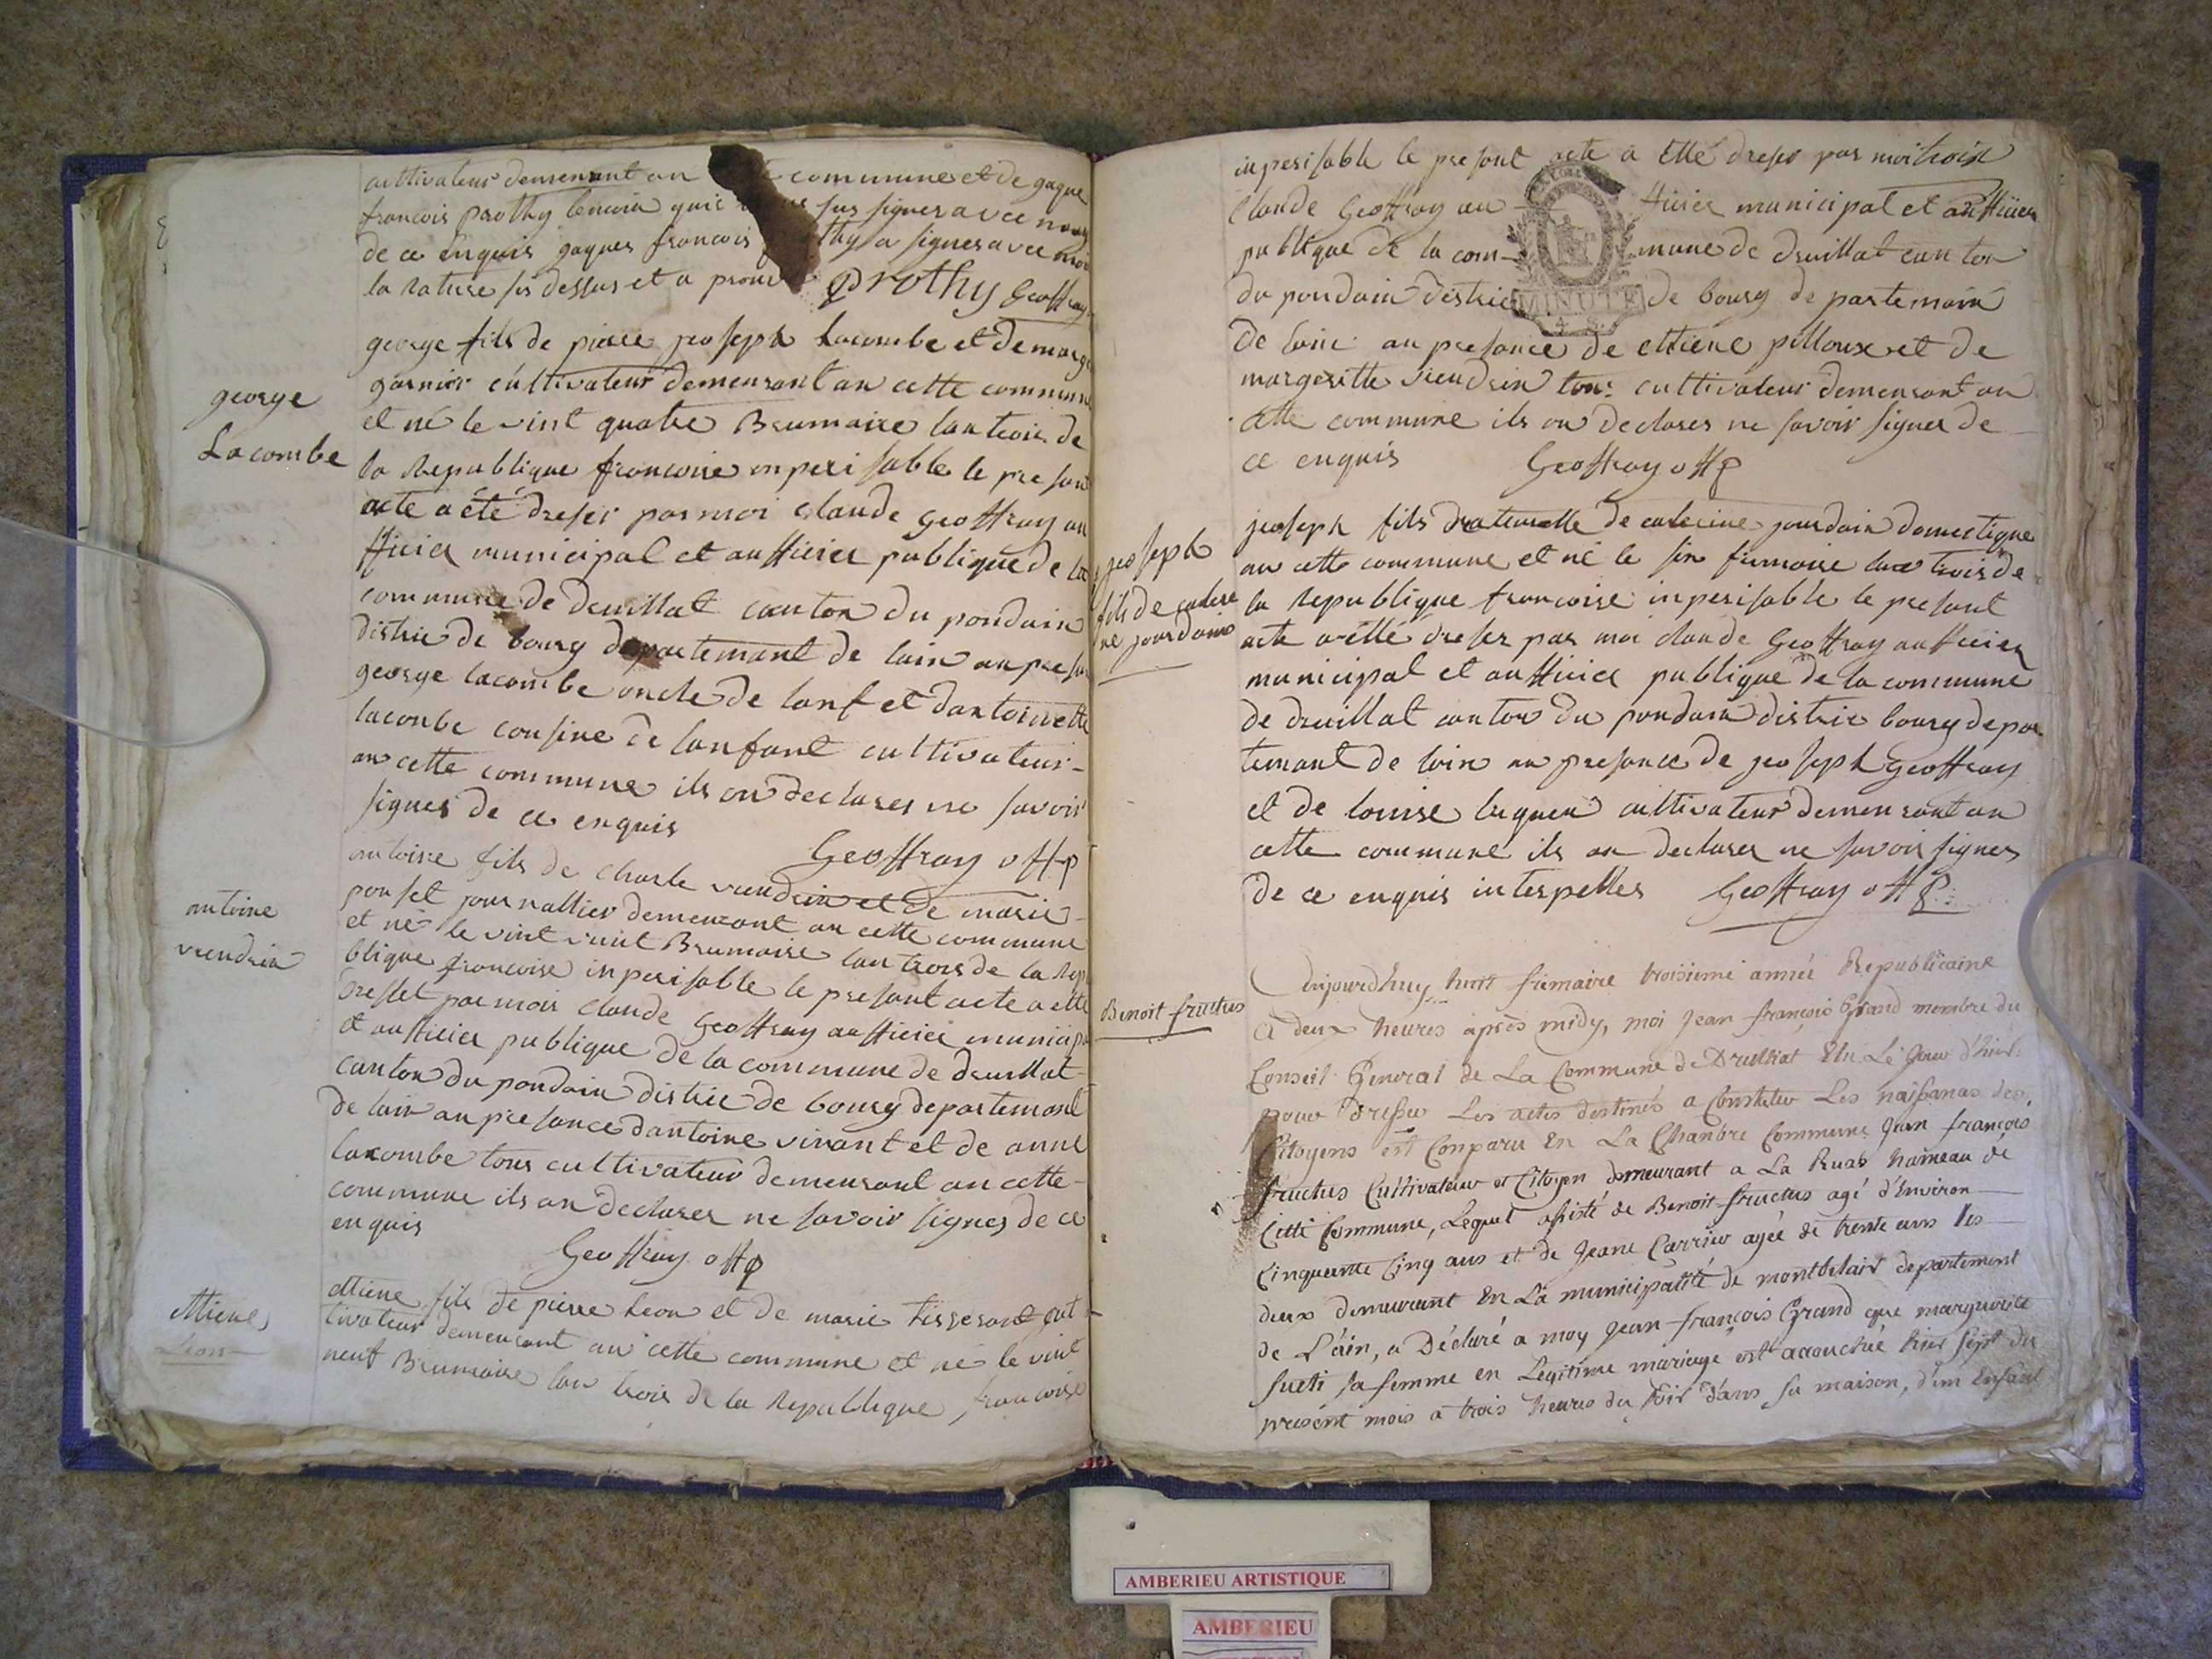 cultivateur demenrant an commune et de gaque
francois prothy temoin quit sus signer avec nous
de ce enquis gaques francois thy a signer avec moi
la rature sis dessus et a prouve prothy Geoffray
george
Lacombe
george fils de pierre joseph lacombe et de marge
garnier cultivateur demeurant an cette commune
et né le vint quatre Brumaire lan trois de
la Republique francoise inperisable le presant
acte a été dreser par moi claude Geoffray au
fficier municipal et aufficier publique de la
commune de druillat canton du pondain
distric de bourg departemant de lain an presan
george lacombe oncle de lanf et dantoinette
lacombe cousine de lanfant cultivateur
an cette commune ils on declarer ne savoir
signer de ce enquis
Geoffray off p
antoine
vuendrin
antoine fils de charle vuendrin et de marie
ponset journallier demeurant an cette commune
et né le vint vuit Brumaire lan trois de la Rep
blique francoise inperisable le presant acte a etté
dresset par moi claude Geoffray aufficier municip
et aufficier publique de la commune de druillat
canton du pondain distric de bourg departemant
de lain an presance dantoine vivant et de anne
lacombe tous cultivateur demeurant an cette
commune ils an declarer ne savoir signer de ce
enquis
Geoffray off p
ettiene
Leon
ettiene fils de pierre leon et de marie tisserant cul
tivateur demeurant an cette commune et né le vint
neuf Brumaire lan trois de la Republique francoise
inperisable le presant acte a etté dreser par moi
Claude Geoffray au fficier municipal et aufficier
publique de la com mune de druillat canton
du pondain distric de bourg departemant
MINUTE
de lain an presance de ettiene pilloux et de
margeritte vieudrin tous cultivateur demeurant an
cette commune ils on declarer ne savoir signer de
ce enquis Geoffray off p
joseph
fils de catere
ne jourdain
joseph fils naturelle de caterine jourdain domestique
an cette commune et né le sin frimaire lan trois de
la Republique francoise inperisable le presant
acte a etté dreser par moi claude Geoffray aufficier
municipal et aufficier publique de la commune
de druillat canton du pondain distric bourg depar
temant de lain an presance de joseph geoffray
et de louise cultivateur demeurant an
cette commune ils an declarer ne savoir signer
de ce enquis interpelles Geoffray off p
Benoit fructus
Aujourdhuy huit frimaire troisieme année Republicaine
a deux heures après midy, moi Jean-françois Grand membre du
Conseil General de La Commune de Druillat Elu Le Jour d'hier
pour dresser Les actes destinés a Constater Les naissances des
Citoyens est Comparu En La Chambre Commune Jean françois
fructus Cultivateur et Citoyen demeurant a La Ruas hameau de
Cette Commune, Lequel assisté de Benoit fructus agé d'Environ
Cinquante Cinq ans et de Jeane Carrier agée de trente ans Les
deux demeurant En La municipalité de montbelair departement
de L'ain, a Déclaré a moy Jean-françois Grand que marguerite
sa femme en Legitime mariage est accouchée hier sept du
present mois a trois heures du soir dans sa maison, d'un Enfant
AMBERIEU ARTISTIQUE
AMBERIEU